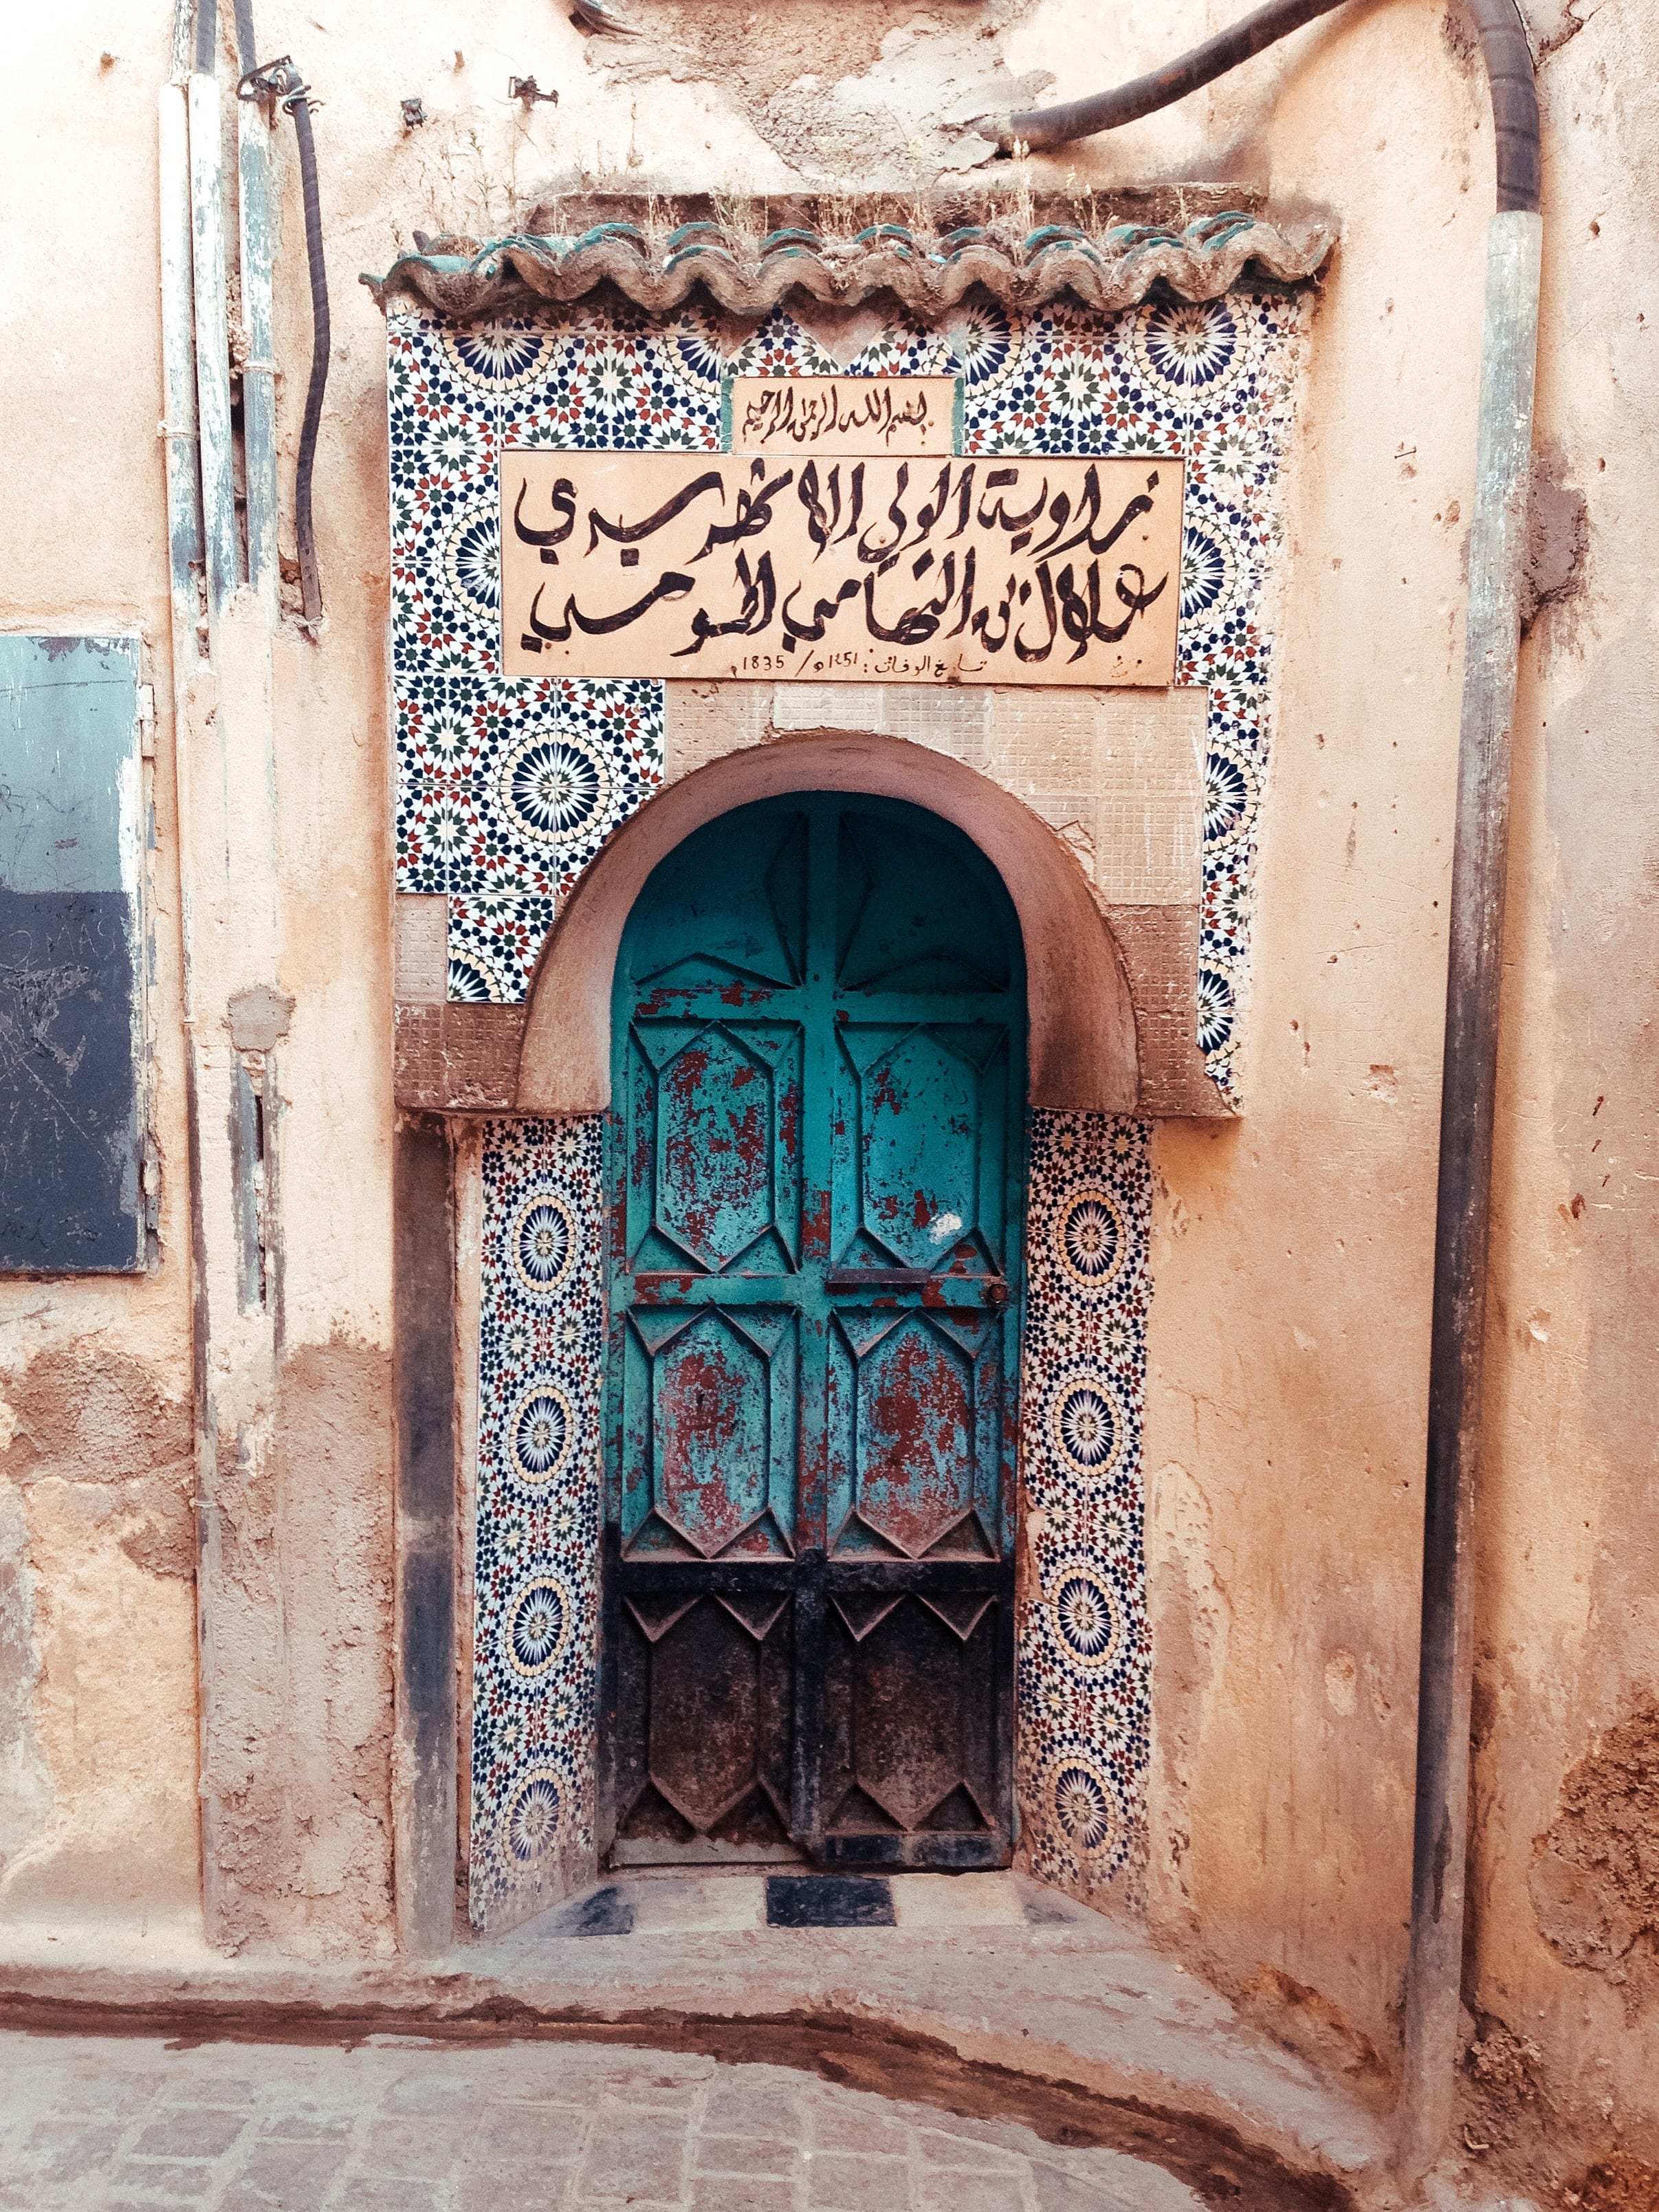 بسم الله الرحمن الرحيم
زاوية الولي الاشهر سيدي
علال بن التهامي
تاريخ الوفاة : 1251ه / 1835م